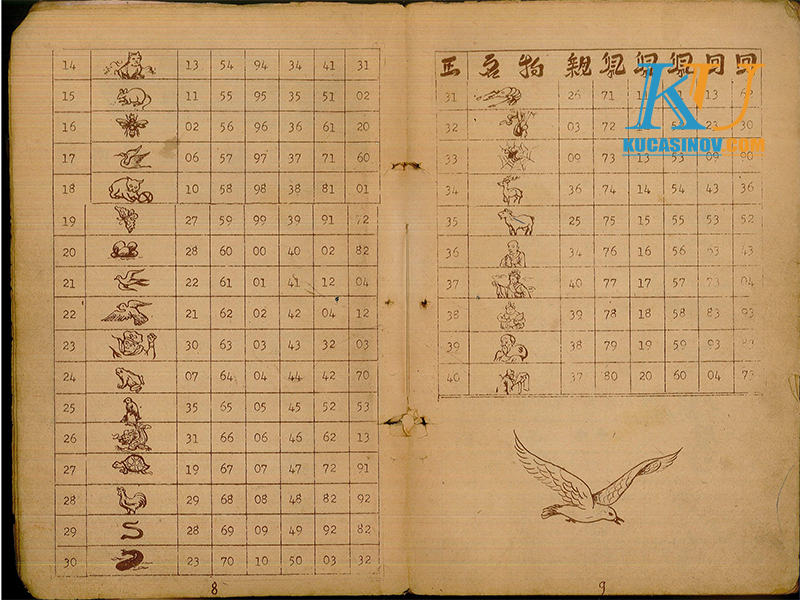 14 13 54 94 34 41 31
15 11 55 95 35 51 02
16 02 56 96 36 61 20
17 06 57 97 37 71 60
18 10 58 98 38 81 01
19 27 59 99 39 91 72
20 28 60 00 40 02 82
21 22 61 01 41 12 04
22 21 62 02 42 04 12
23 30 63 03 43 32 03
24 07 64 04 44 42 70
25 35 65 05 45 52 53
26 31 66 06 46 62 13
27 19 67 07 47 72 91
28 29 68 08 48 82 92
29 28 69 09 49 92 82
30 23 70 10 50 03 32
8
物 親
31 26 71 13
32 03 30
33 09 73 13 53 09 90
34 36 74 14 54 43 36
35 25 75 15 55 53 52
36 34 76 16 56 43
37 40 77 17 57 04
38 39 78 18 58 83 93
39 38 79 19 59 93
40 37 80 20 60 04
9
KU
KUCASINOV.COM